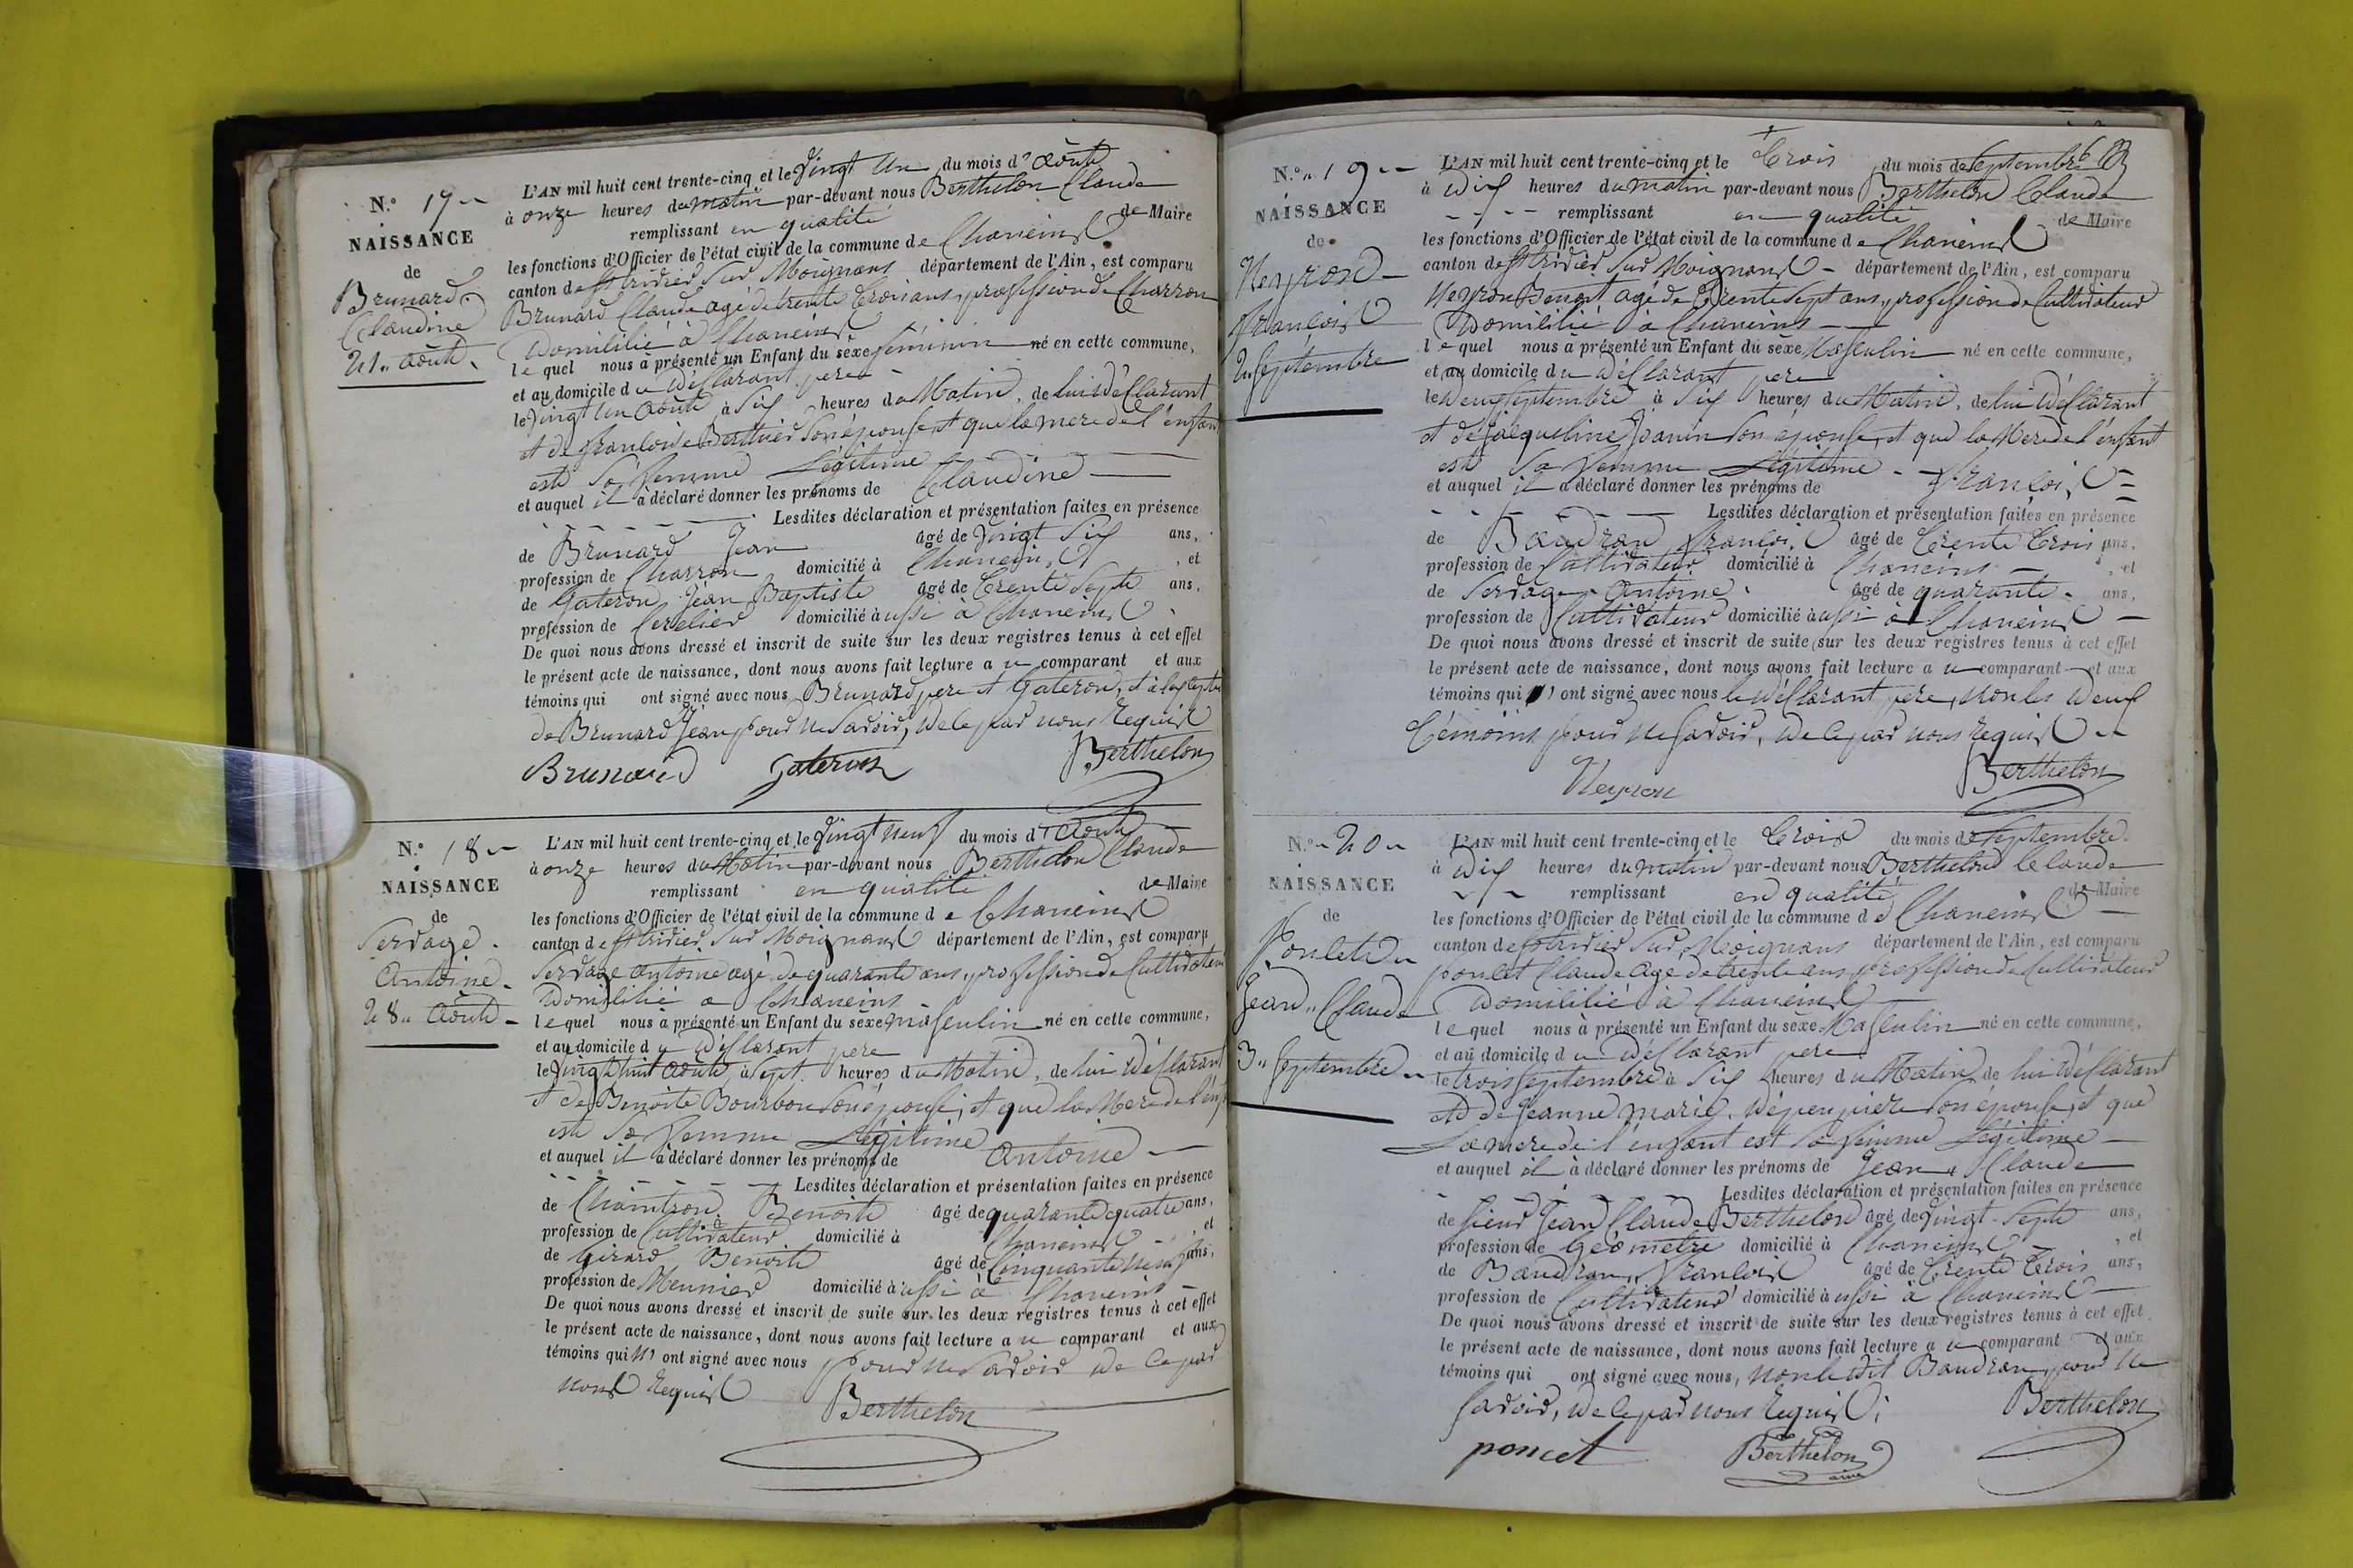 N.° 17
NAISSANCE
de
Brunard
Claudine
21 août
L'AN mil huit cent trente-cinq et le Vingt Un du mois d'août
à onze heures du matin par-devant nous Berthelon Claude
remplissant en qualité de Maire
les fonctions d'Officier de l'état civil de la commune de Chaneins
canton de St tridier Sur Moignans département de l'Ain, est comparu
Brunard Claude agé de trente trois ans, profession de Charron
Domicilié à Chaneins
lequel nous à présenté un Enfant du sèxe féminin né en cette commune,
et au domicile du Déclarant pere
le Vingt un août à Six heures du Matin, de lui Déclarant
et de francoise Berthier son épouse, et que la mere de l'enfant
est Sa femme Légitime
et auquel il à déclaré donner les prénoms de Claudine
Lesdites déclaration et présentation faites en présence
de Brunard Jean âgé de Vingt Six ans,
profession de Charron domicilié à Chaneins, et
de Gateron Jean Baptiste âgé de trente Sept ans,
profession de domicilié aussi à Chaneins
De quoi nous avons dressé et inscrit de suite sur les deux registres tenus à cet effet
le présent acte de naissance, dont nous avons fait lecture au comparant et aux
témoins qui ont signé avec nous Brunard pere et Gateron, et à
de Brunard Jean pour ne Savoir, de ce par nous Requis
Brunard Gateron Berthelon
N.° 18
NAISSANCE
de
Servage
Antoine
28 août
L'AN mil huit cent trente-cinq et le Vingt neuf du mois d'Août
à onze heures du Matin par-devant nous Berthelon Claude
remplissant en qualité de Maire
les fonctions d'Officier de l'état civil de la commune de Chaneins
canton de St tridier Sur Moignans département de l'Ain, est comparu
Servage antoine agé de quarante ans, profession de Cultivateur
Domicilié à Chaneins
lequel nous à présenté un Enfant du sèxe masculin né en cette commune,
et au domicile du Déclarant pere
le Vingt huit août, à Sept heures du Matin, de lui Déclarant
et de Benoite Bourbon son épouse, et que la Mere de l'enf
est Sa femme Légitime
et auquel il à déclaré donner les prénoms de Antoine
Lesdites déclaration et présentation faites en présence
de Chaintron Benoite âgé de quarante quatre ans,
profession de Cultivateur domicilié à Chaneins, et
de Girard Benoite âgé de Cinquante neuf ans,
profession de Meunier domicilié aussi à Chaneins
De quoi nous avons dressé et inscrit de suite sur les deux registres tenus à cet effet
le présent acte de naissance, dont nous avons fait lecture au comparant et aux
témoins qui n' ont signé avec nous pour ne Savoir de ce par
nous Requis
Berthelon
N.° 19
NAISSANCE
de
Neyron
françois
2 Septembre
L'AN mil huit cent trente-cinq et le trois du mois de Septembre
à Dix heures du matin par-devant nous Berthelon Claude
remplissant en qualité de Maire
les fonctions d'Officier de l'état civil de la commune de Chaneins
canton de St tridier Sur Moignans département de l'Ain, est comparu
Neyron Benoit agé de trente Sept ans, profession de Cultivateur
Domicilié à Chaneins
lequel nous à présenté un Enfant du sèxe Masculin né en cette commune,
et au domicile du Déclarant pere
le Deux Septembre à Six heures du Matin, de lui Déclarant
et de Jacqueline Janin Son épouse, et que la Mere de l'enfant
est Sa femme Légitime
et auquel il a déclaré donner les prénoms de françois
Lesdites déclaration et présentation faites en présence
de Baudran françois âgé de trente trois ans,
profession de Cultivateur domicilié à Chaneins, et
de Servage Antoine âgé de quarante ans,
profession de Cultivateur domicilié aussi à Chaneins
De quoi nous avons dressé et inscrit de suite sur les deux registres tenus à cet effet
le présent acte de naissance, dont nous avons fait lecture au comparant et aux
témoins qui ont signé avec nous le Déclarant pere, non les Deux
témoins pour ne Savoir, de ce par nous Requis
Neyron Berthelon
N.° 20
NAISSANCE
de
Jean Claude
3 Septembre
L'AN mil huit cent trente-cinq et le trois du mois de Septembre
à Dix heures du matin par-devant nous Berthelon Claude
remplissant en qualité de Maire
les fonctions d'Officier de l'état civil de la commune de Chaneins
canton de St tridier Sur Moignans département de l'Ain, est comparu
poncet Claude agé de trente ans, profession de Cultivateur
Domicilié à Chaneins
lequel nous à présenté un Enfant du sèxe Masculin né en cette commune,
et au domicile du Déclarant pere
le trois Septembre à Six heures du Matin de lui Déclarant
et de Jeanne marie Son epouse, et que
La mere de l'enfant est Sa femme Légitime
et auquel il à déclaré donner les prénoms de Jean Claude
Lesdites déclaration et présentation faites en présence
de Sieur Jean Claude Berthelon âgé de Vingt Sept ans,
profession de Géometre domicilié à Chaneins, et
de Baudran françois âgé de trente trois ans,
profession de Cultivateur domicilié aussi à Chaneins
De quoi nous avons dressé et inscrit de suite sur les deux registres tenus à cet effet
le présent acte de naissance, dont nous avons fait lecture au comparant et aux
témoins qui ont signé avec nous, non le Dit Baudran, pour ne
Savoir, de ce par nous Requis;
Berthelon
poncet Berthelon